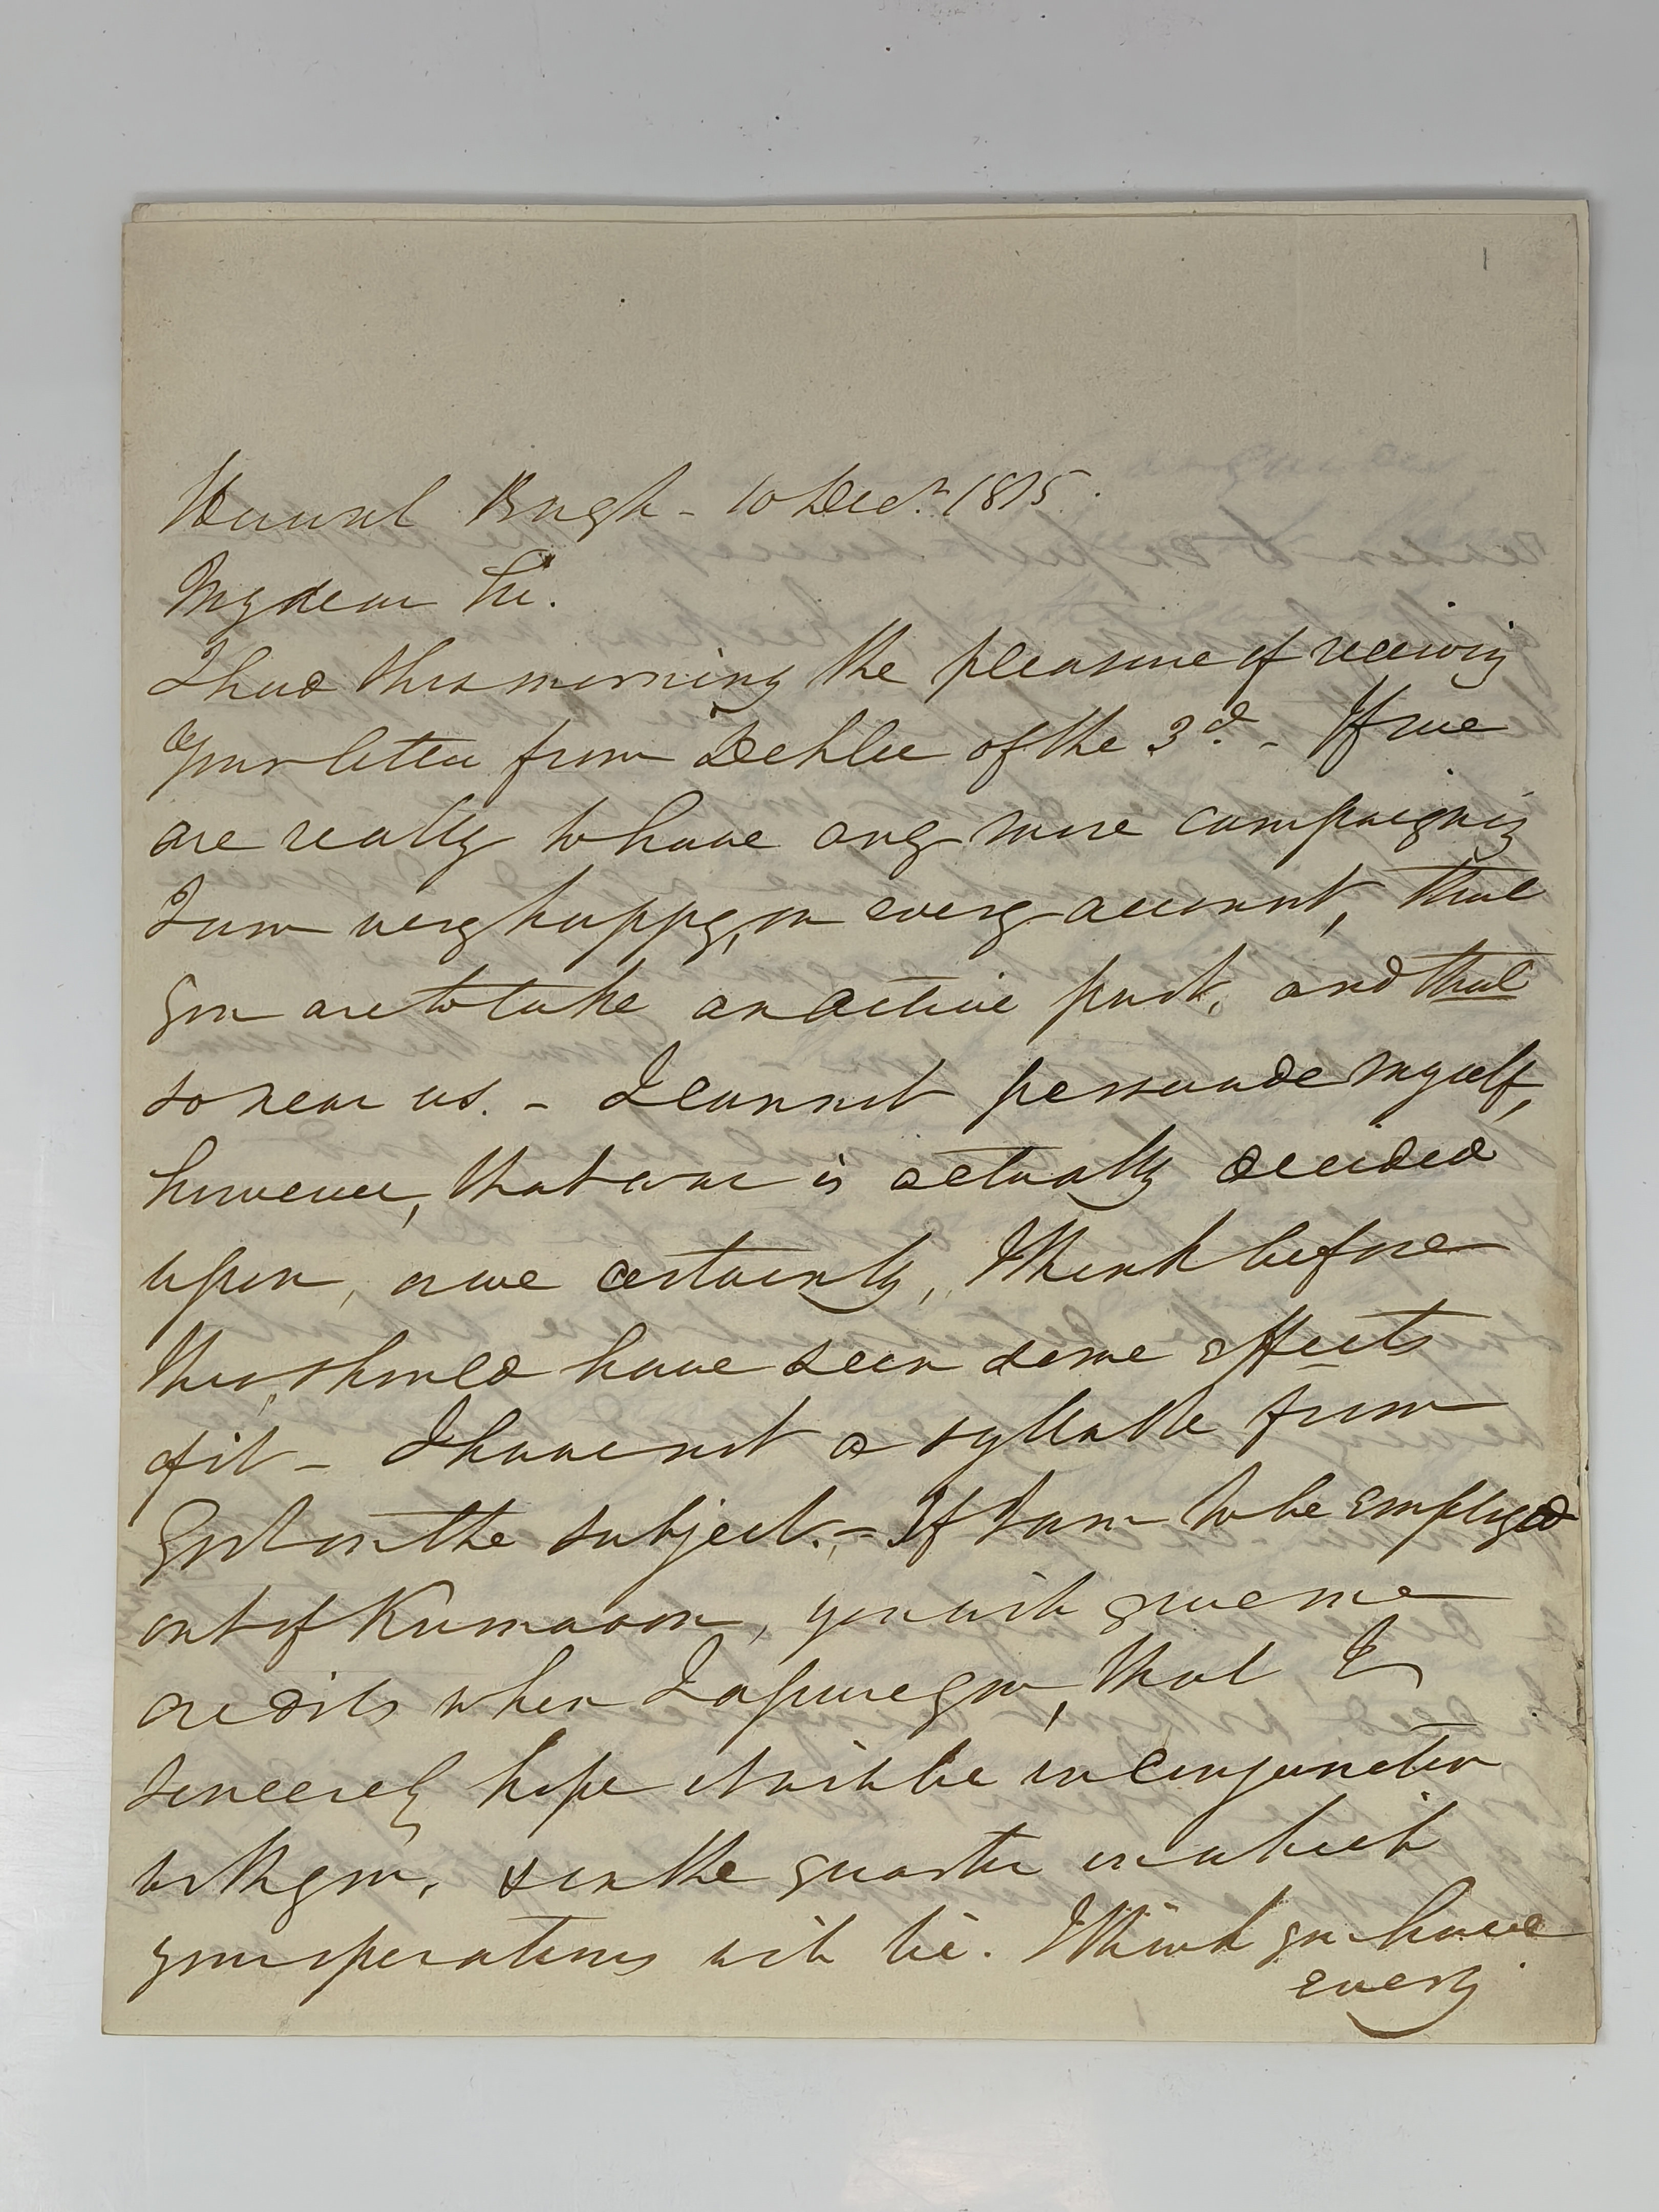 Hawul Bagh - 10 Decr. 1815.
My dear Sir.
I had this morning the pleasure of receiving
your letter from Dehlee of the 3d. - If we
are really to have any more campaigning
I am very happy, on every account, that
you are to take an active part, and that
so near us. - I cannot persuade myself,
however, that war is actually decided
upon, or we certainly, I think before
this, should have seen some effects
of it - I have not a syllable from
Govt on the subject. - If I am to be employed
out of Kumaoon, you will give me
credit when I assure you, that I
sincerely hope it will be in conjunction
with you, & in the quarter in which
your operations will lie. I think you have
every